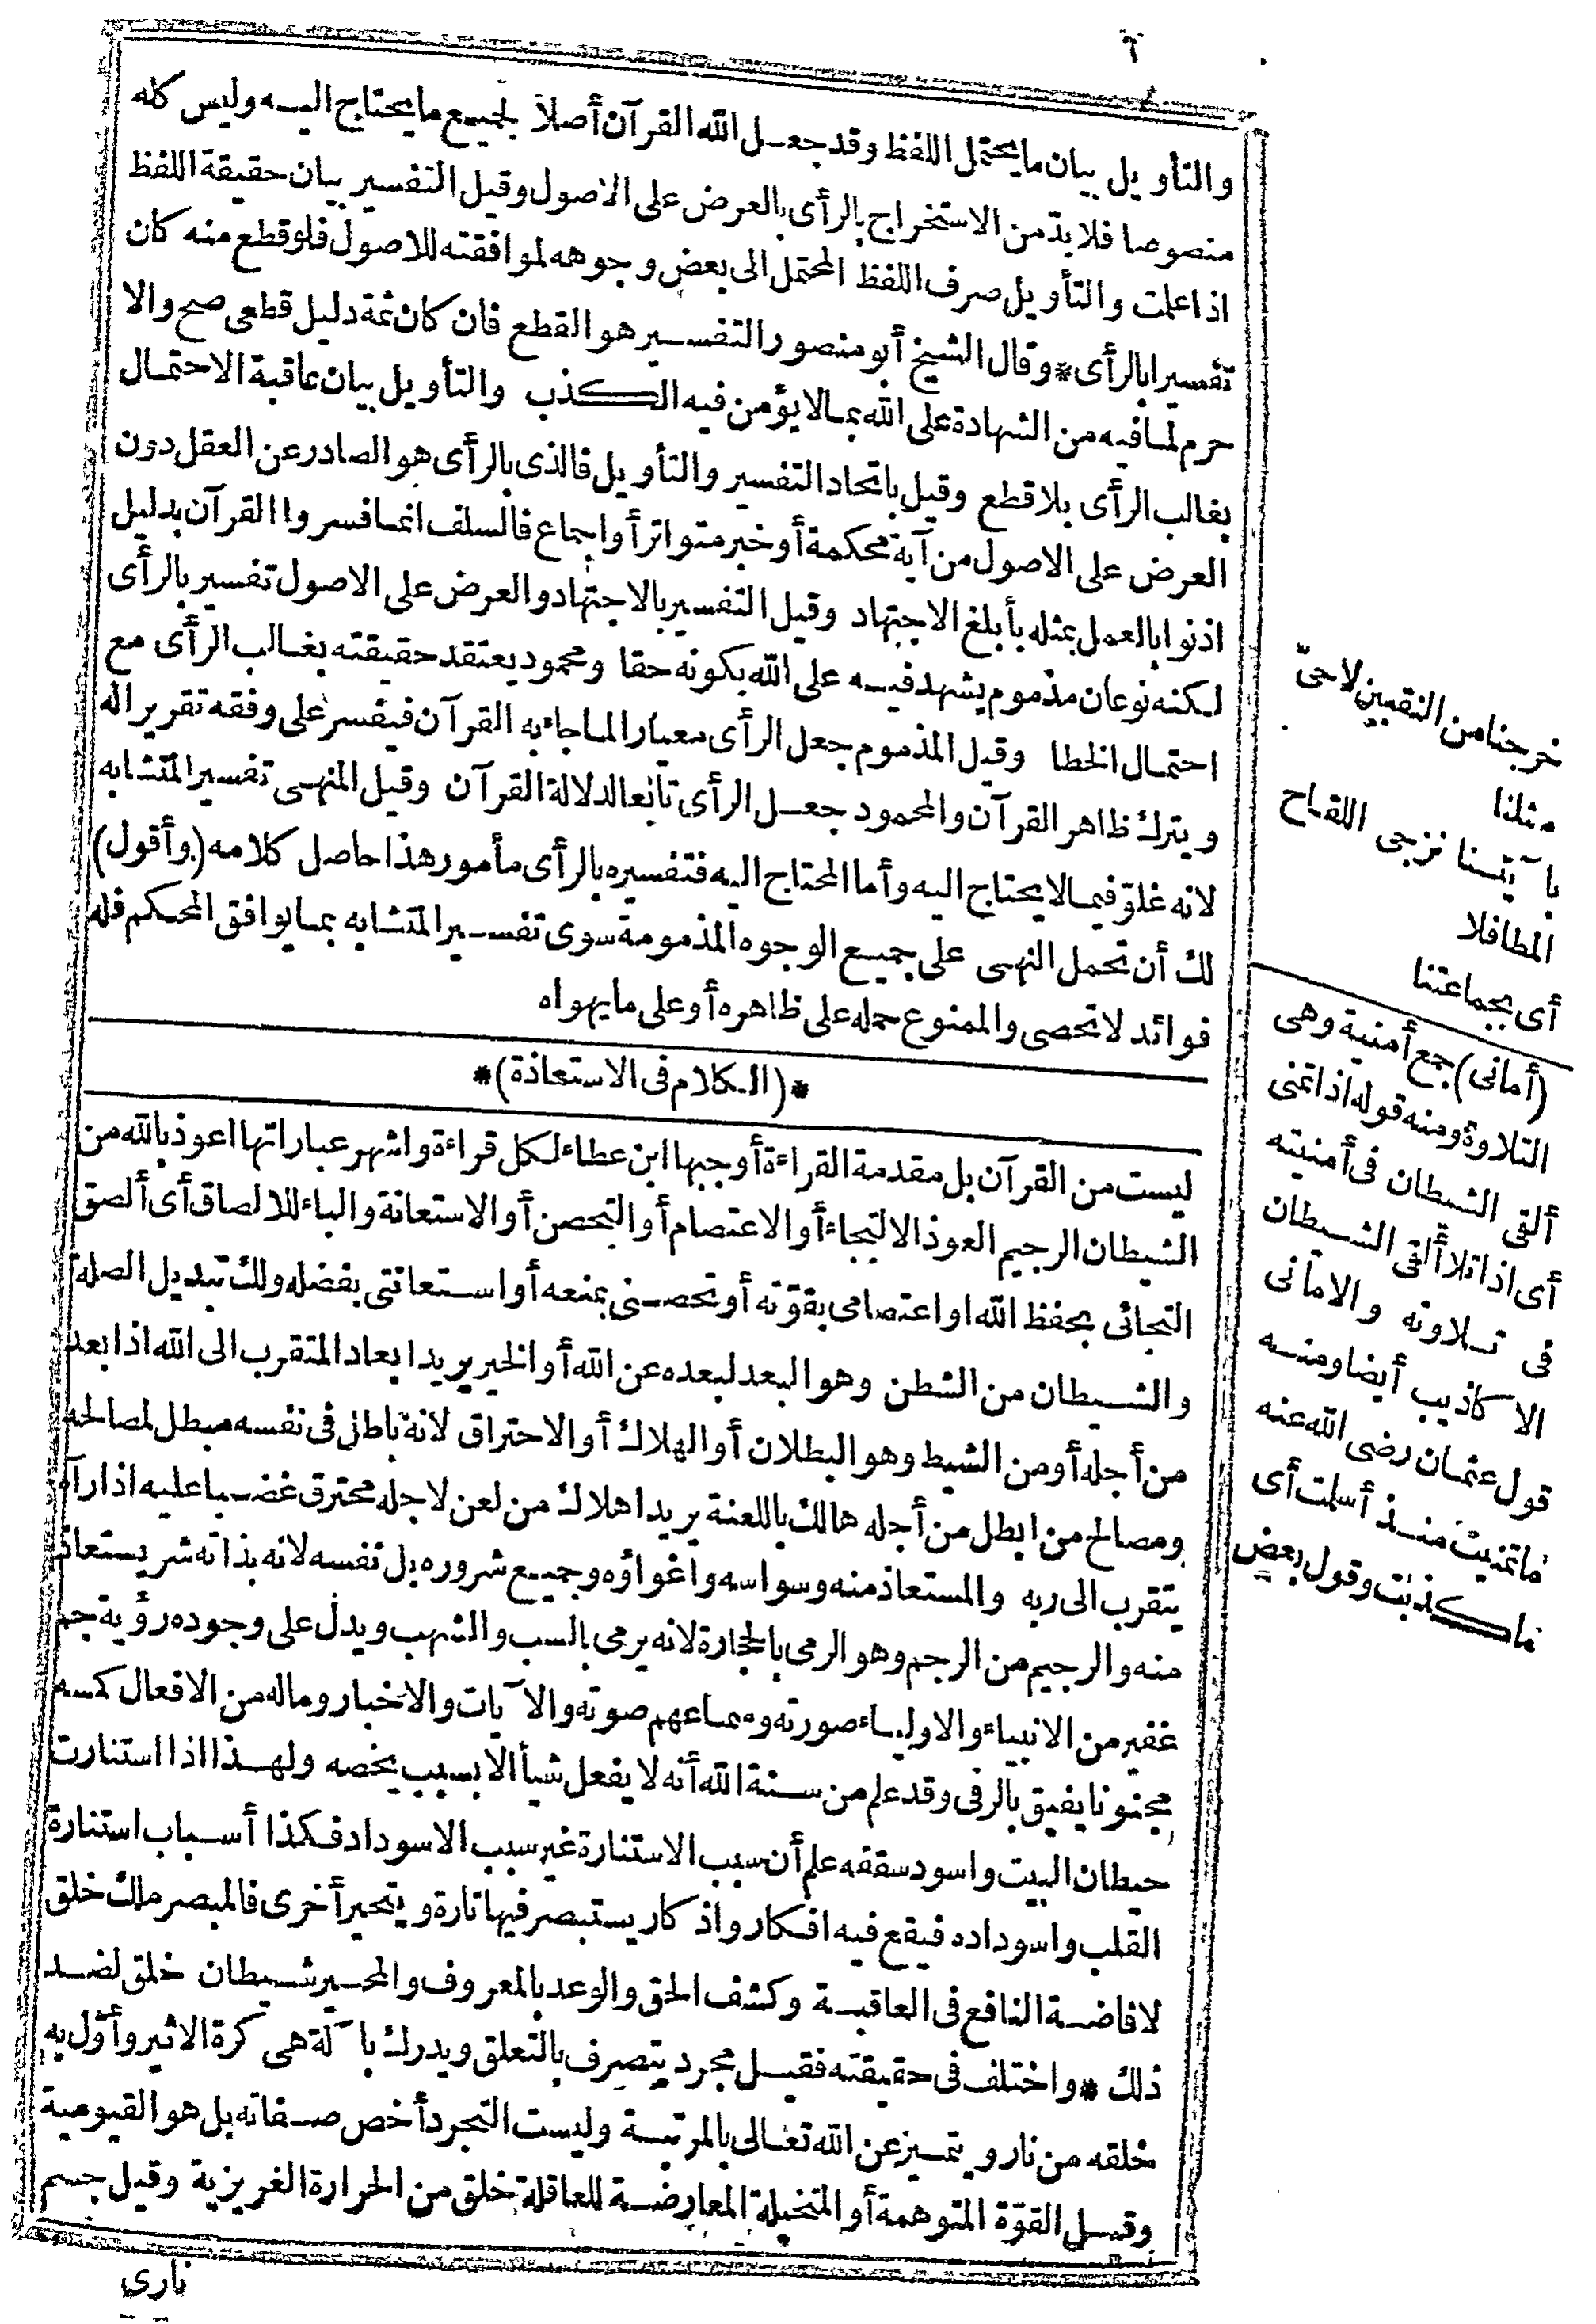 ٦
والتأويل بيان ما يحتمل اللفظ وقد جعل الله القرآن أصلا لجميع ما يحتاج اليه وليس كله
منصوصا فلا بدّ من الاستخراج بالرأى بالعرض على الاصول وقيل التفسير بيان حقيقة اللفظ
اذا علمت والتأويل صرف اللفظ المحتمل الى بعض وجوهه لموافقته للاصول فلو قطع منه كان
تفسيرا بالرأى * وقال الشيخ أبو منصور التفسير هو القطع فان كان ثمة دليل قطعى صح والا
حرم لما فيه من الشهادة على الله بما لا يؤمن فيه الكذب والتأويل بيان عاقبة الاحتمال
بغالب الرأى بلا قطع وقيل باتحاد التفسير والتأويل فالذى بالرأى هو الصادر عن العقل دون
العرض على الاصول من آية محكمة أو خبر متواتر أو اجماع فالسلف انما فسروا القرآن بدليل
اذنوا بالعمل بمثله بأبلغ الاجتهاد وقيل التفسير بالاجتهاد والعرض على الاصول تفسير بالرأى
لكنه نوعان مذموم يشهد فيه على الله بكونه حقا ومحمود يعتقد حقيقته بغالب الرأى مع
احتمال الخطا وقيل المذموم جعل الرأى معيارا لما جاء به القرآن فيفسر على وفقه تقريرا له
ويترك ظاهر القرآن والمحمود جعل الرأى تابعا لدلالة القرآن وقيل المنهى تفسير المتشابه
لانه غلوّ فيما لا يحتاج اليه وأما المحتاج اليه فتفسيره بالرأى مأمور هذا حاصل كلامه (وأقول)
لك أن تحمل النهى على جميع الوجوه المذمومة سوى تفسير المتشابه بما يوافق المحكم فله
فوائد لا تحصى والممنوع حمله على ظاهره أو على ما يهواه
*(الكلام فى الاستعاذة)*
ليست من القرآن بل مقدمة القراءة أوجبها ابن عطاء لكل قراءة واشهر عباراتها اعوذ بالله من
الشيطان الرجيم العوذ الالتجاء أو الاعتصام أو التحصن أو الاستعانة والباء للالصاق أى ألصق
التجائى بحفظ الله او اعتصامى بقوّته أو تحصنى بمنعه أو استعانتى بفضله ولك تبديل الصلة
والشيطان من الشطن وهو البعد لبعده عن الله أو الخير يريد ابعاد المتقرب الى الله اذا بعد
من أجله أو من الشيط وهو البطلان أو الهلاك أو الاحتراق لانه باطل فى نفسه مبطل لمصالحه
ومصالح من ابطل من أجله هالك باللعنة يريد اهلاك من لعن لاجله محترق غضبا عليه اذا رآه
يتقرب الى ربه والمستعاذ منه وسواسه واغواؤه وجميع شروره بل نفسه لانه بذاته شر يستعاذ
منه والرجيم من الرجم وهو الرمى بالحجارة لانه يرمى بالسب والشهب ويدل على وجوده رؤية جم
غفير من الانبياء والاولياء صورته وسماعهم صوته والآيات والاخبار وماله من الافعال كمسه
مجنونا يفيق بالرقى وقد علم من سنة الله أنه لا يفعل شيأ الا بسبب يخصه ولهذا اذا استنارت
حيطان البيت واسود سقفه علم أن سبب الاستنارة غير سبب الاسوداد فكذا أسباب استنارة
القلب واسوداده فيقع فيه افكار واذكار يستبصر فيها تارة ويتحير أخرى فالمبصر ملك خلق
لافاضة النافع فى العاقبة وكشف الحق والوعد بالمعروف والمحير شيطان خلق لضد
ذلك * واختلف فى حقيقته فقيل مجرد يتصرف بالتعلق ويدرك بآلة هى كرة الاثير وأوّل به
خلقه من نار ويتميز عن الله تعالى بالمرتبة وليست التجرد أخص صفاته بل هو القيومية
وقيل القوّة المتوهمة أو المتخيلة المعارضة للعاقلة خلق من الحرارة الغريزية وقيل جسم
نارى
خرجنا من النقبين لا حىّ
مثلنا
بآيتنا نزجى اللقاح
المطافلا
أى بجماعتنا
(أمانى) جمع أمنية وهى
التلاوة ومنه قوله اذا تمنى
ألقى الشيطان فى أمنيته
أى اذا تلا ألقى الشيطان
فى تلاوته والامانى
الاكاذيب أيضا ومنه
قول عثمان رضى الله عنه
ما تمنيت منذ أسلمت أى
ما كذبت وقول بعض